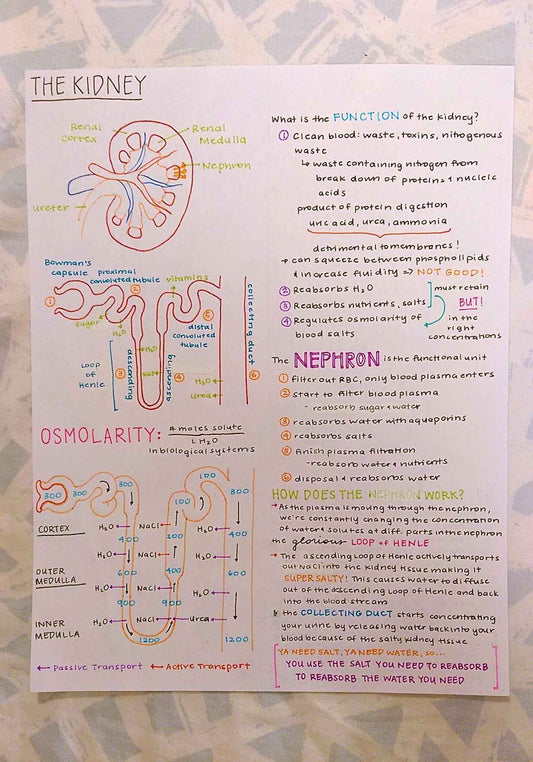 THE KIDNEY
Renal
Cortex
Renal
Medulla
Nephron
ureter
Bowman's
capsule
proximal
convoluted tubule
vitamins
①
②
sugar
H₂O
⑤
distal
convoluted
tubule
collecting duct
Loop
of
Henle
③
descending
H₂O
salt
ascending
④
H₂O
urea
⑥
OSMOLARITY: # moles solute
L H₂O
in biological systems
300
300
300
100
100
300
CORTEX
H₂O
NaCl
H₂O
400
200
400
OUTER
MEDULLA
H₂O
NaCl
H₂O
600
400
600
H₂O
NaCl
H₂O
900
900
INNER
MEDULLA
H₂O
NaCl
Urea
1200
1200
Passive Transport
Active Transport
What is the FUNCTION of the kidney?
① Clean blood: waste, toxins, nitrogenous
waste
↳ waste containing nitrogen from
break down of proteins + nucleic
acids
product of protein digestion
uric acid, urea, ammonia
detrimental to membranes!
→ can squeeze between phospholipids
& increase fluidity => NOT GOOD!
② Reabsorbs H₂O
③ Reabsorbs nutrients, salts
must retain
BUT!
④ Regulates osmolarity of
blood salts
in the
right
concentrations
The NEPHRON is the functional unit
① filter out RBC, only blood plasma enters
② start to filter blood plasma
- reabsorb sugar & water
③ reabsorbs water with aquaporins
④ reabsorbs salts
⑤ finish plasma filtration
- reabsorb water + nutrients
⑥ disposal & reabsorbs water
HOW DOES THE NEPHRON WORK?
→ As the plasma is moving through the nephron,
we're constantly changing the concentration
of water & solutes at diff. parts in the nephron
the glorious LOOP of HENLE
→ The ascending Loop of Henle actively transports
out NaCl into the kidney tissue making it
SUPER SALTY! This causes water to diffuse
out of the descending Loop of Henle and back
into the blood stream
& the COLLECTING DUCT starts concentrating
your urine by releasing water back into your
blood because of the salty kidney tissue
YA NEED SALT, YA NEED WATER, SO...
YOU USE THE SALT YOU NEED TO REABSORB
TO REABSORB THE WATER YOU NEED